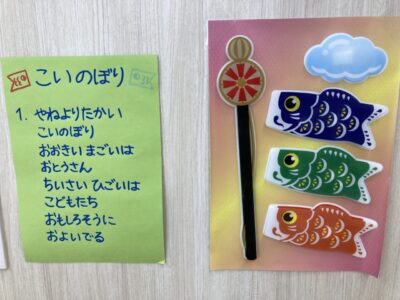 こいのぼり
1. やねよりたかい
こいのぼり
おおきい まごいは
おとうさん
ちいさい ひごいは
こどもたち
おもしろそうに
およいでる